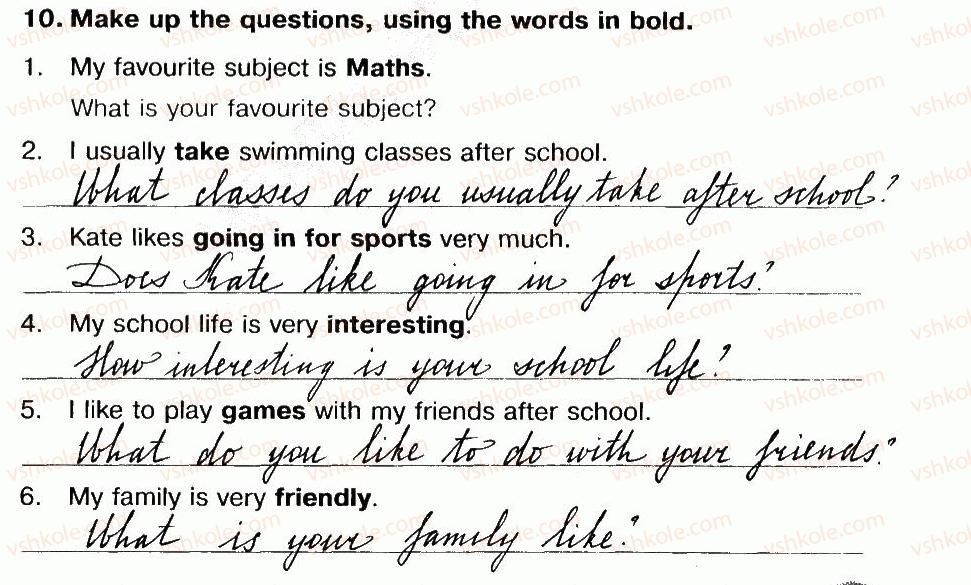 10. Make up the questions, using the words in bold.
1. My favourite subject is Maths.
What is your favourite subject?
2. I usually take swimming classes after school.
What classes do you usually take after school?
3. Kate likes going in for sports very much.
Does Kate like going in for sports?
4. My school life is very interesting.
How interesting is your school life?
5. I like to play games with my friends after school.
What do you like to do with your friends?
6. My family is very friendly.
What is your family like?